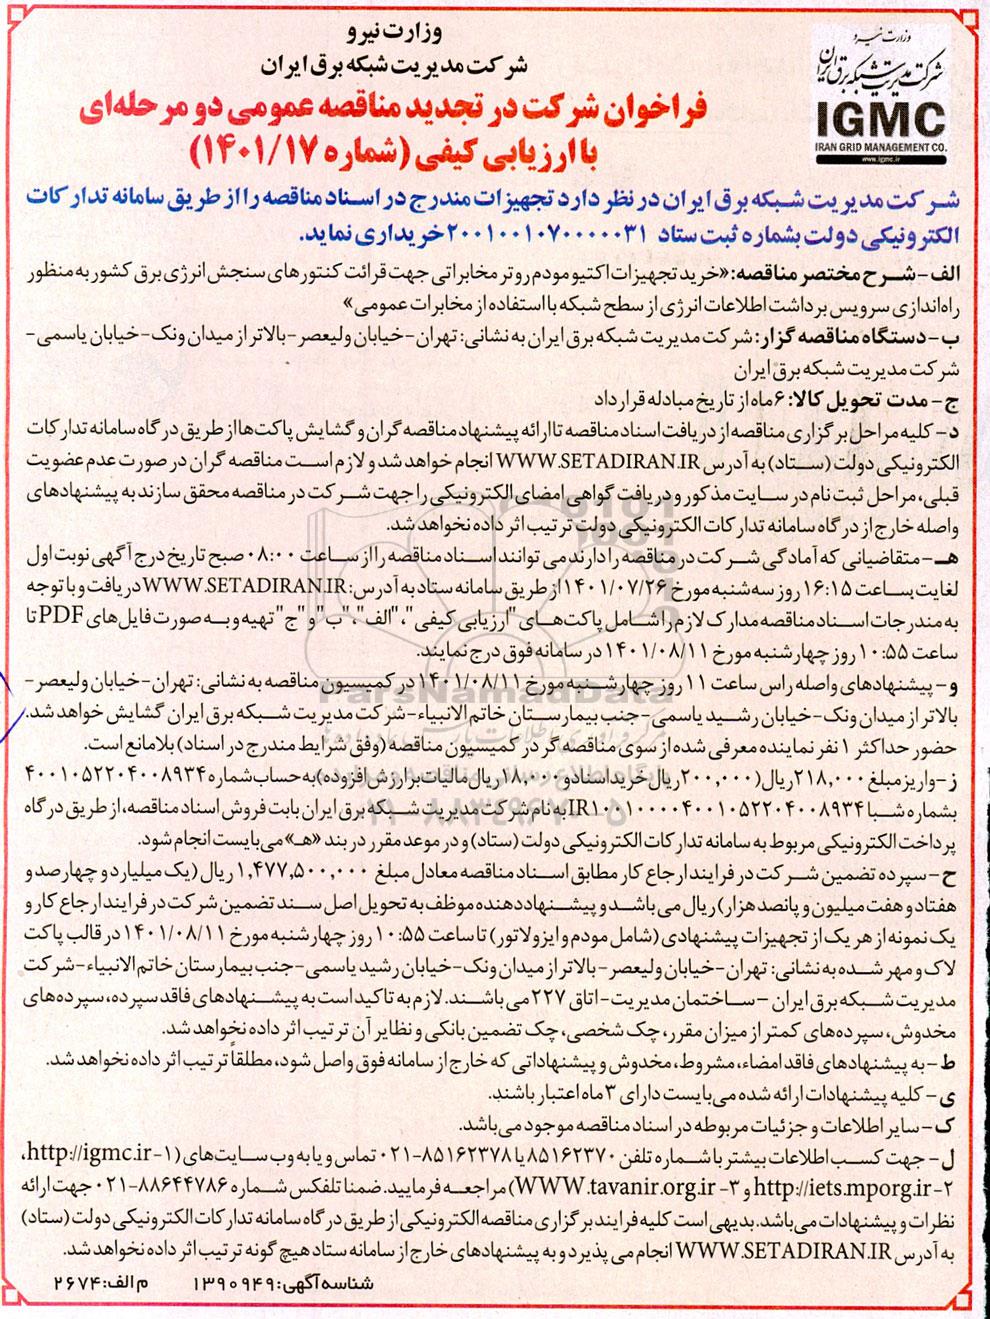 وزارت نیرو
شرکت مدیریت شبکه برق ایران
وزارت نیرو
شرکت مدیریت شبکه برق ایران
IGMC
IRAN GRID MANAGEMENT CO.
www.igmc.ir
فراخوان شرکت در تجدید مناقصه عمومی دو مرحله‌ای
با ارزیابی کیفی (شماره ۱۴۰۱/۱۷)
شرکت مدیریت شبکه برق ایران در نظر دارد تجهیزات مندرج در اسناد مناقصه را از طریق سامانه تدارکات
الکترونیکی دولت بشماره ثبت ستاد ۲۰۰۱۰۰۱۰۷۰۰۰۰۰۳۱ خریداری نماید.
الف- شرح مختصر مناقصه: «خرید تجهیزات اکتیو مودم روتر مخابراتی جهت قرائت کنتورهای سنجش انرژی برق کشور به منظور
راه‌اندازی سرویس برداشت اطلاعات انرژی از سطح شبکه با استفاده از مخابرات عمومی»
ب- دستگاه مناقصه گزار: شرکت مدیریت شبکه برق ایران به نشانی: تهران- خیابان ولیعصر- بالاتر از میدان ونک- خیابان یاسمی-
شرکت مدیریت شبکه برق ایران
ج- مدت تحویل کالا: ۶ ماه از تاریخ مبادله قرارداد
د- کلیه مراحل برگزاری مناقصه از دریافت اسناد مناقصه تا ارائه پیشنهاد مناقصه گران و گشایش پاکت‌ها از طریق درگاه سامانه تدارکات
الکترونیکی دولت (ستاد) به آدرس WWW.SETADIRAN.IR انجام خواهد شد و لازم است مناقصه گران در صورت عدم عضویت
قبلی، مراحل ثبت نام در سایت مذکور و دریافت گواهی امضای الکترونیکی را جهت شرکت در مناقصه محقق سازند به پیشنهادهای
واصله خارج از درگاه سامانه تدارکات الکترونیکی دولت ترتیب اثر داده نخواهد شد.
هـ- متقاضیانی که آمادگی شرکت در مناقصه را دارند می توانند اسناد مناقصه را از ساعت ۰۸:۰۰ صبح تاریخ درج آگهی نوبت اول
لغایت ساعت ۱۶:۱۵ روز سه شنبه مورخ ۱۴۰۱/۰۷/۲۶ از طریق سامانه ستاد به آدرس: WWW.SETADIRAN.IR دریافت و با توجه
به مندرجات اسناد مناقصه مدارک لازم را شامل پاکت‌های "ارزیابی کیفی"، "الف"، "ب" و "ج" تهیه و به صورت فایل‌های PDF تا
ساعت ۱۰:۵۵ روز چهارشنبه مورخ ۱۴۰۱/۰۸/۱۱ در سامانه فوق درج نمایند.
و- پیشنهادهای واصله راس ساعت ۱۱ روز چهارشنبه مورخ ۱۴۰۱/۰۸/۱۱ در کمیسیون مناقصه به نشانی: تهران- خیابان ولیعصر-
بالاتر از میدان ونک- خیابان رشید یاسمی- جنب بیمارستان خاتم الانبیاء- شرکت مدیریت شبکه برق ایران گشایش خواهد شد.
حضور حداکثر ۱ نفر نماینده معرفی شده از سوی مناقصه گر در کمیسیون مناقصه (وفق شرایط مندرج در اسناد) بلامانع است.
ز- واریز مبلغ ۲۱۸,۰۰۰ ریال (۲۰۰,۰۰۰ ریال خرید اسناد و ۱۸,۰۰۰ ریال مالیات بر ارزش افزوده) به حساب شماره ۴۰۰۱۰۵۲۲۰۴۰۰۸۹۳۴
بشماره شبا IR۱۰۰۱۰۰۰۰۴۰۰۱۰۵۲۲۰۴۰۰۸۹۳۴ بنام شرکت مدیریت شبکه برق ایران بابت فروش اسناد مناقصه، از طریق درگاه
پرداخت الکترونیکی مربوط به سامانه تدارکات الکترونیکی دولت (ستاد) و در موعد مقرر در بند «هـ» می‌بایست انجام شود.
ح- سپرده تضمین شرکت در فرایند ارجاع کار مطابق اسناد مناقصه معادل مبلغ ۱,۴۷۷,۵۰۰,۰۰۰ ریال (یک میلیارد و چهارصد و
هفتاد و هفت میلیون و پانصد هزار) ریال می باشد و پیشنهاد دهنده موظف به تحویل اصل سند تضمین شرکت در فرایند ارجاع کار و
یک نمونه از هر یک از تجهیزات پیشنهادی (شامل مودم و ایزولاتور) تا ساعت ۱۰:۵۵ روز چهارشنبه مورخ ۱۴۰۱/۰۸/۱۱ در قالب پاکت
لاک و مهر شده به نشانی: تهران- خیابان ولیعصر- بالاتر از میدان ونک- خیابان رشید یاسمی- جنب بیمارستان خاتم الانبیاء- شرکت
مدیریت شبکه برق ایران - ساختمان مدیریت- اتاق ۲۲۷ می باشند. لازم به تاکید است به پیشنهادهای فاقد سپرده، سپرده‌های
مخدوش، سپرده‌های کمتر از میزان مقرر، چک شخصی، چک تضمین بانکی و نظایر آن ترتیب اثر داده نخواهد شد.
ط- به پیشنهادهای فاقد امضاء، مشروط، مخدوش و پیشنهاداتی که خارج از سامانه فوق واصل شود، مطلقاً ترتیب اثر داده نخواهد شد.
ی- کلیه پیشنهادات ارائه شده می‌بایست دارای ۳ ماه اعتبار باشند.
ک- سایر اطلاعات و جزئیات مربوطه در اسناد مناقصه موجود می‌باشد.
ل- جهت کسب اطلاعات بیشتر با شماره تلفن ۸۵۱۶۲۳۷۰ یا ۸۵۱۶۲۳۷۸-۰۲۱ تماس و یا به وب سایت‌های (۱-http://igmc.ir،
۲-http://iets.mporg.ir و ۳-WWW.tavanir.org.ir) مراجعه فرمایید. ضمنا تلفکس شماره ۸۸۶۴۴۷۸۶-۰۲۱ جهت ارائه
نظرات و پیشنهادات می‌باشد. بدیهی است کلیه فرایند برگزاری مناقصه الکترونیکی از طریق درگاه سامانه تدارکات الکترونیکی دولت (ستاد)
به آدرس WWW.SETADIRAN.IR انجام می پذیرد و به پیشنهادهای خارج از سامانه ستاد هیچ گونه ترتیب اثر داده نخواهد شد.
شناسه آگهی: ۱۳۹۰۹۴۹ م الف: ۲۶۷۴
ParsNamadData